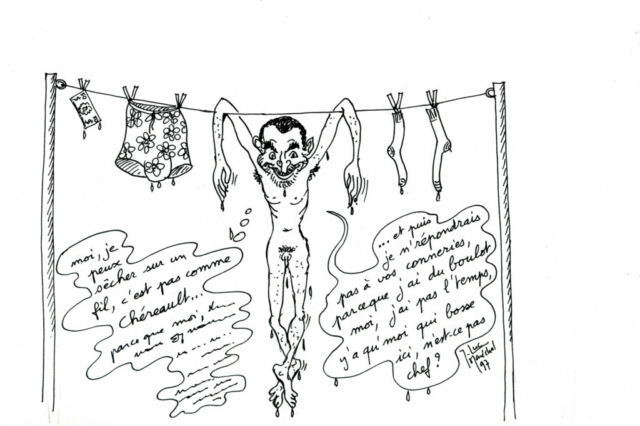 moi, je
peux
sécher sur un
fil, c'est pas comme
Chéreault...
parce que moi,
...et puis
je n'répondrais
pas à vos conneries,
parceque j'ai du boulot
moi, j'ai pas l'temps,
y'a qu'moi qui bosse
ici, n'est-ce pas
chef?
97